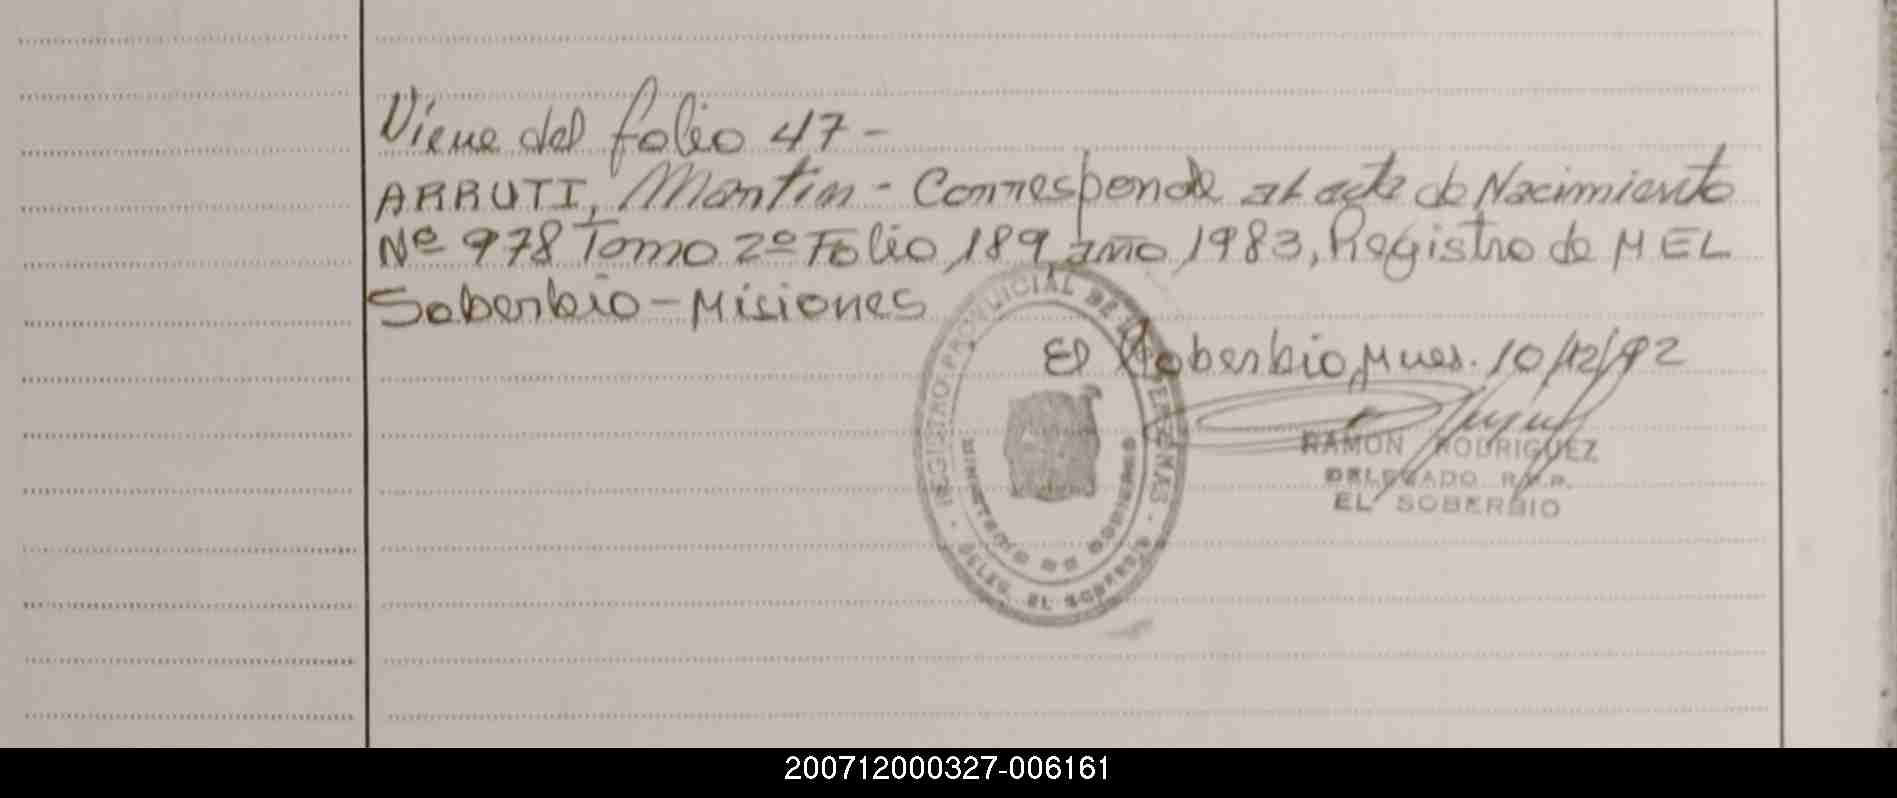 Viene del folio 47 -
ARRUTI, Martin - Corresponde al acta de Nacimiento
Nº 978 Tomo 2º Folio 189, año 1983, Registro de M EL
Soberbio - Misiones
El Soberbio, Mnes. 10/12/92
REGISTRO PROVINCIAL DE LAS PERSONAS
MINISTERIO DE GOBIERNO
DELEG. EL SOBERBIO
RAMON RODRIGUEZ
DELEGADO R.P.P.
EL SOBERBIO
200712000327-006161